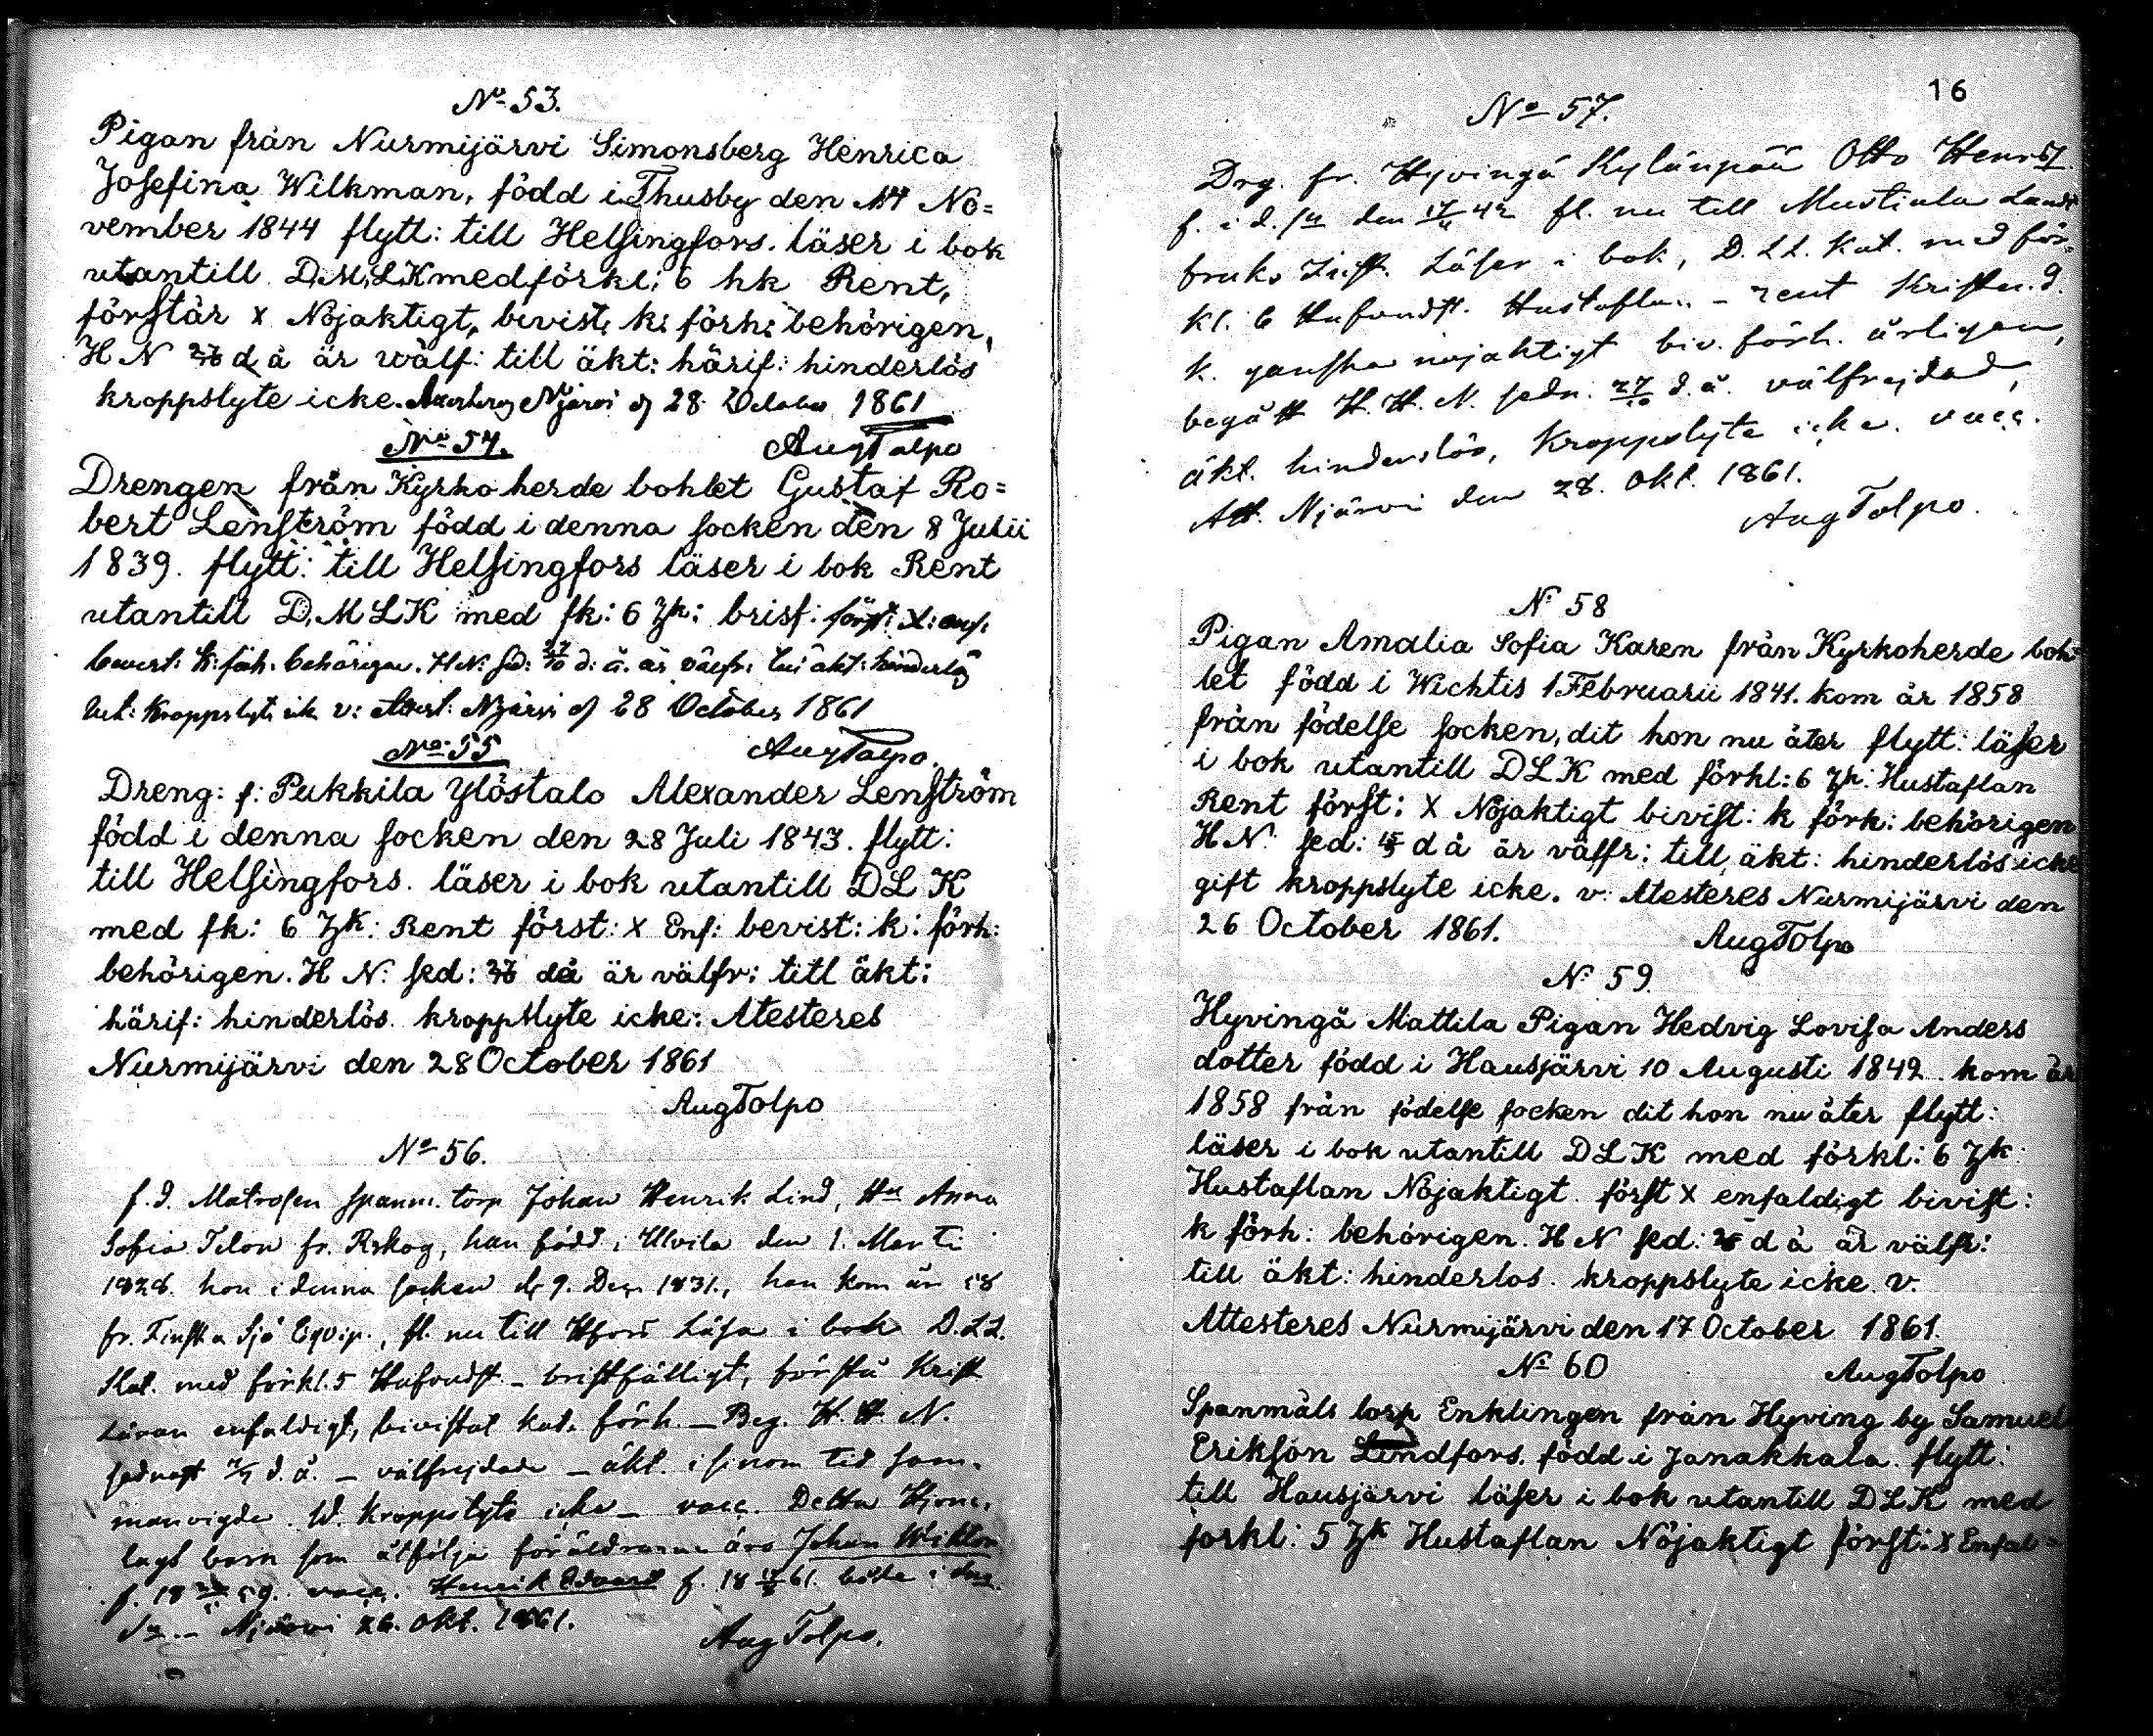 No 53.
Pigan från Nurmijärvi Simonsberg Henrica
Josefina Wilkman, född i Thusby den 14 No=
vember 1844 flytt: till Helsingfors. läser i bok
utantill D.M.L.K med förkl: 6 hk Rent,
förstår x Nöjaktigt, bevist: k: förh: behörigen,
H N d å är wälf: till äkt: härif: hinderlös
kroppslyte icke. Njärvi d 28 October 1861
Aug Tolpo
No 54.
Drengen från Kyrkoherde bohlet Gustaf Ro=
bert Lenström född i denna socken den 8 Julii
1839. flytt: till Helsingfors läser i bok Rent
utantill D.M L K med fk: 6 hk: brisf: först: X: enf:
bevist: k: förh: behörigen. H N: sed: 27/10 d: å. är välfr: till äkt: hinderlös
Kroppslyte ick v: Attest: Njärvi d 28 October 1861
Aug Tolpo.
No 55
Dreng: f: Pukkila Ylöstalo Alexander Lenström
född i denna socken den 28 Juli 1843. flytt:
till Helsingfors. läser i bok utantill D L K
med fk: 6 hk: Rent först: x Enf: bevist: k: förh:
behörigen. H N: sed: då är välfr: titl äkt:
härif: hinderlös. kroppslyte icke: Atesteres
Nurmijärvi den 28 October 1861
Aug Tolpo
No 56.
f.d. Matrosen spanm. torp Johan Henrik Lind, Hu Anna
Sofia Telon fr. Rskog, han född i Ulvila den 1. Marti
1828. hon i denna socken d. 9. Dec. 1831., han kom år 58
fr. Finska Sjö Eqvip., fl. nu till Hfors Läsa i bok D. L L.
Kat. med förkl. 5 Hufvudst. - bristfälligt, förstå Krist
Läran enfaldigt, bivistat kat. förh. - Beg. H. H. N.
sednast d. å. - välfrejdade - äkt. i sinom tid sam-
manvigde. Kroppslyte icke - vacc. Detta Hjone-
lags barn som åtfölja föräldrarne äro Johan Wiktor
f. 18 59. vacc. Henrik Edvard f. 18 61. både i
Njärvi 26. Okt. 1861.
Aug Tolpo.
16
No 57.
Drg. fr. Hyvingä Kylänpää Otto
f. i d. den 42 fl. nu till Mustiala Landt
bruks Läser i bok, D. L L. Kat. med för=
kl. 6 Hufvudst. Hustaflan - rent Kristen d.
k. ganska nöjaktigt biv. förh. ärligen,
begått H. H. N. sedn. 27/10 d. å. välfrejdad,
äkt. hinderslös, Kroppslyte icke. vacc.
Att. Njärvi den 28. Okt. 1861.
Aug Tolpo.
N: 58
Pigan Amalia Sofia Karen från Kyrkoherde boh=
let född i Wichtis 1 Februarii 1841. kom år 1858
från födelse socken, dit hon nu åter flytt: läser
i bok utantill D L K med förkl: 6 hk: Hustaflan
Rent först: X Nöjaktigt bivist: k förh: behörigen
H N: sed: d å är välfr: till äkt: hinderlös icke
gift kroppslyte icke. v: Atesteres Nurmijärvi den
26 October 1861.
Aug Tolpo
N: 59.
Hyvingä Mattila Pigan Hedvig Lovisa Anders
dotter född i Hausjärvi 10 Augusti 1842. kom år
1858 från födelse socken dit hon nu åter flytt:
läser i bok utantill D L K med förkl: 6 hk:
Hustaflan Nöjaktigt. först x enfaldigt bivist:
k förh: behörigen. H N sed: d å är välfr:
till äkt: hinderlos. kroppslyte icke. v.
Attesteres Nurmijärvi den 17 October 1861.
Aug Tolpo
No 60
Spanmåls torp Enklingen från Hyving by Samuel
Erikson Lindfors. född i Janakkala. flytt:
till Hausjärvi läser i bok utantill D L K med
forkl: 5 hk Hustaflan Nöjaktigt först: x Enfal=